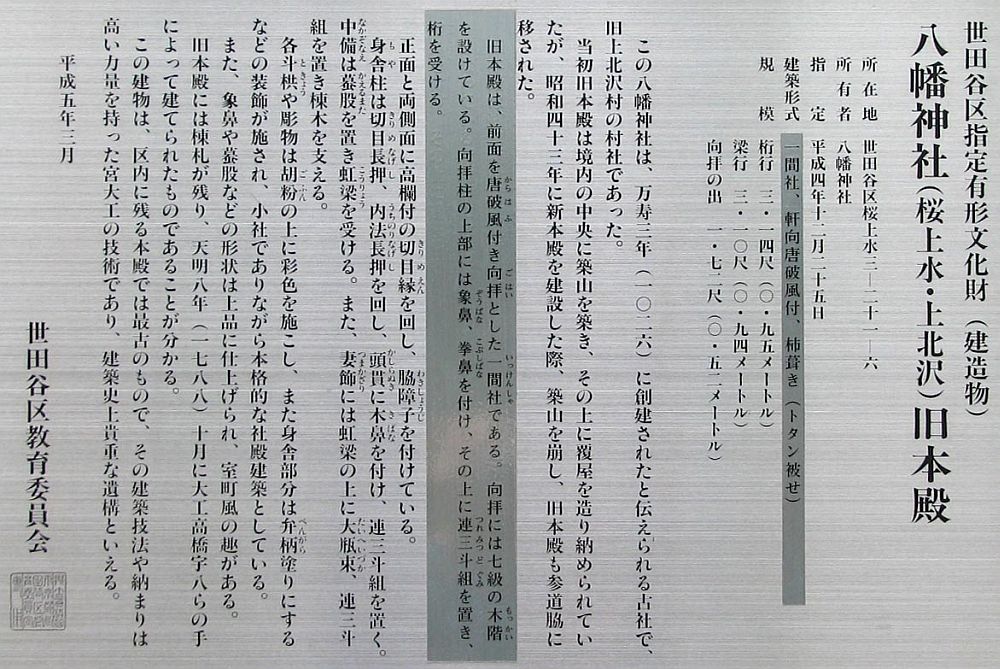 世田谷区指定有形文化財（建造物）
八幡神社（桜上水・上北沢）旧本殿
所在地　世田谷区桜上水三―二十一―六
所有者　八幡神社
指定　平成四年十二月二十五日
建築形式　一間社、軒向唐破風付、柿葺き（トタン被せ）
規模　桁行　三・一四尺（〇・九五メートル）
梁行　三・一〇尺（〇・九四メートル）
向拝の出　一・七二尺（〇・五二メートル）
この八幡神社は、万寿三年（一〇二六）に創建されたと伝えられる古社で、
旧上北沢村の村社であった。
当初旧本殿は境内の中央に築山を築き、その上に覆屋を造り納められてい
たが、昭和四十三年に新本殿を建設した際、築山を崩し、旧本殿も参道脇に
移された。
旧本殿は、前面を唐破風付き向拝とした一間社である。向拝には七級の木階
を設けている。向拝柱の上部には象鼻、拳鼻を付け、その上に連三斗組を置き、
桁を受ける。
正面と両側面に高欄付の切目縁を回し、脇障子を付けている。
身舎柱は切目長押、内法長押を回し、頭貫に木鼻を付け、連三斗組を置く。
中備は蟇股を置き虹梁を受ける。また、妻飾には虹梁の上に大瓶束、連三斗
組を置き棟木を支える。
各斗栱や彫物は胡粉の上に彩色を施こし、また身舎部分は弁柄塗りにする
などの装飾が施され、小社でありながら本格的な社殿建築としている。
また、象鼻や蟇股などの形状は上品に仕上げられ、室町風の趣がある。
旧本殿には棟札が残り、天明八年（一七八八）十月に大工高橋宇八らの手
によって建てられたものであることが分かる。
この建物は、区内に残る本殿では最古のもので、その建築技法や納まりは
高い力量を持った宮大工の技術であり、建築史上貴重な遺構といえる。
平成五年三月
世田谷区教育委員会